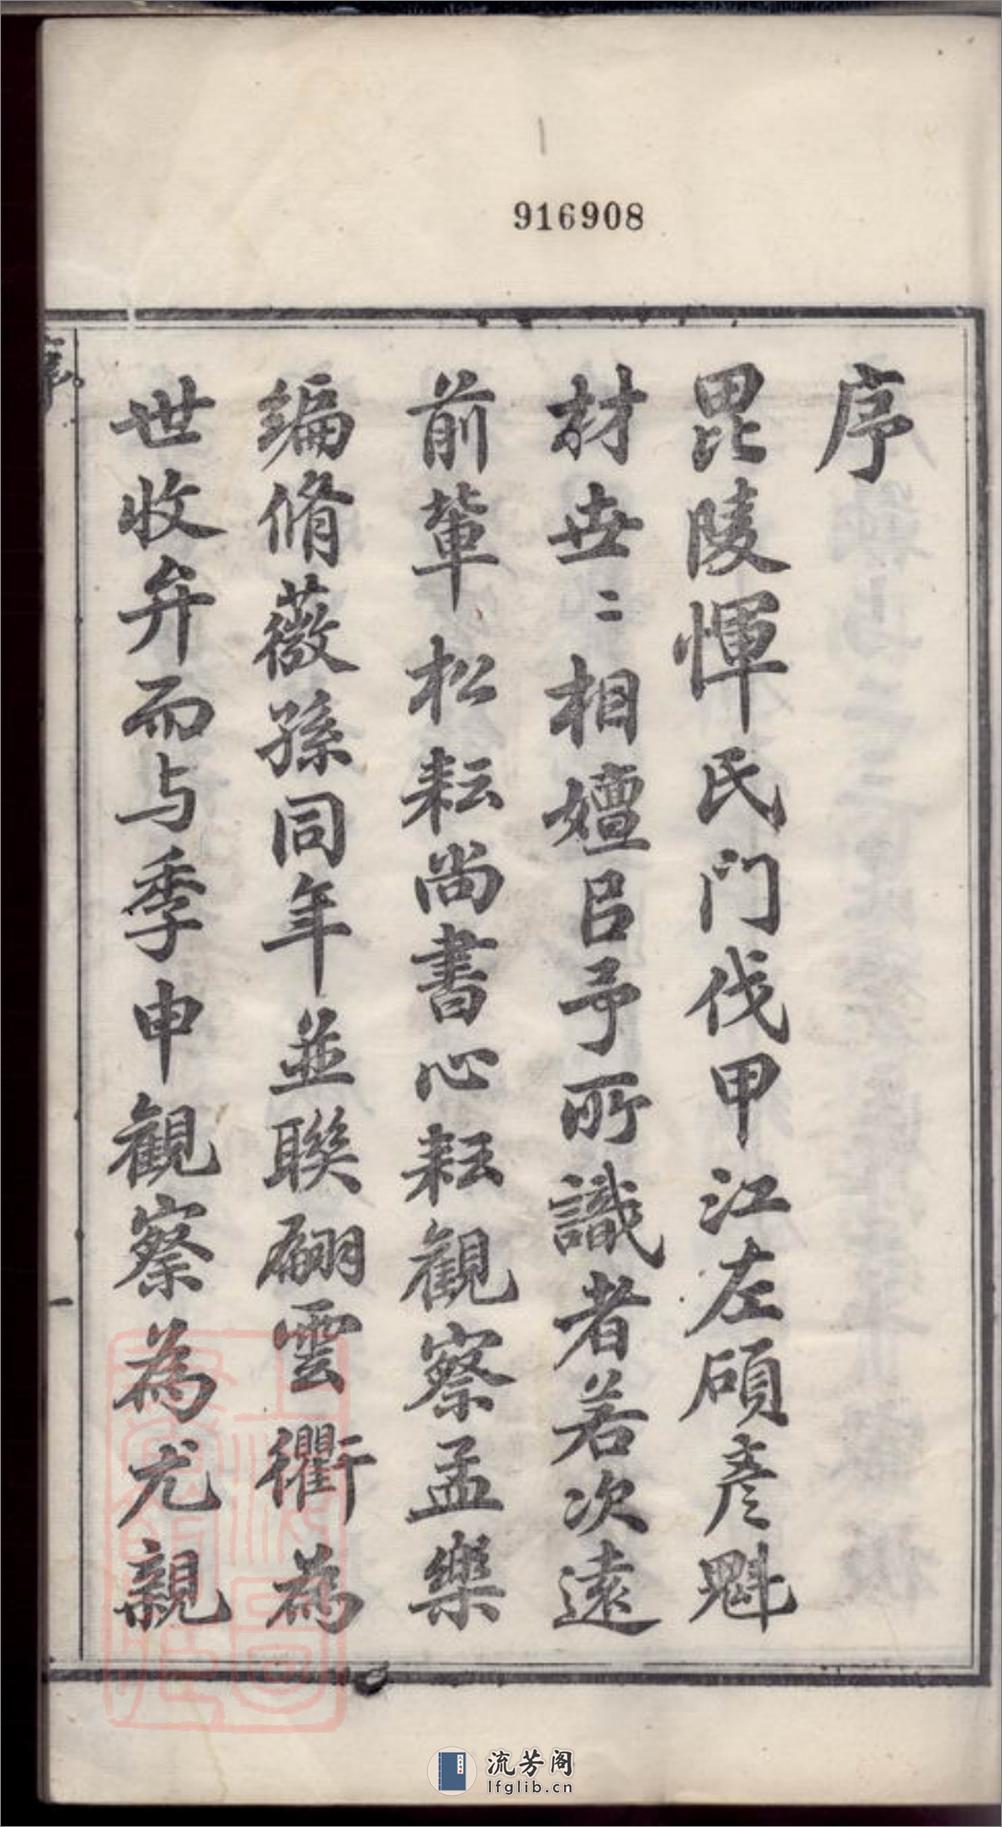 916908
序
毘陵惲氏門伐甲江左碩彥魁
材世〻相嬗㠯予所識者若次遠
前輩松耘尚書心耘觀察孟樂
編脩薇孫同年並聯翩雲衢為
世收弁而与季申觀察為尤親
序
一
流芳阁
lfglib.cn